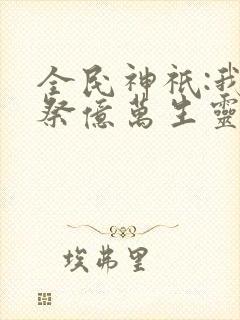 全民神祇:我
祭億萬生靈
埃弗里